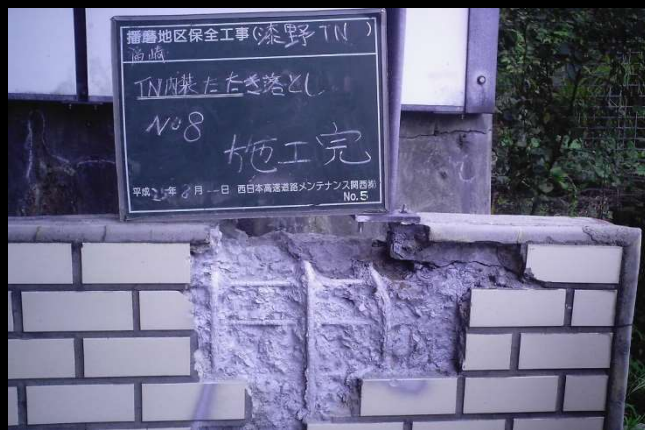 播磨地区保全工事(漆野TN)
TN内装たたき落とし
No8
施工完
平成25年8月 日 西日本高速道路メンテナンス関西㈱
No.5